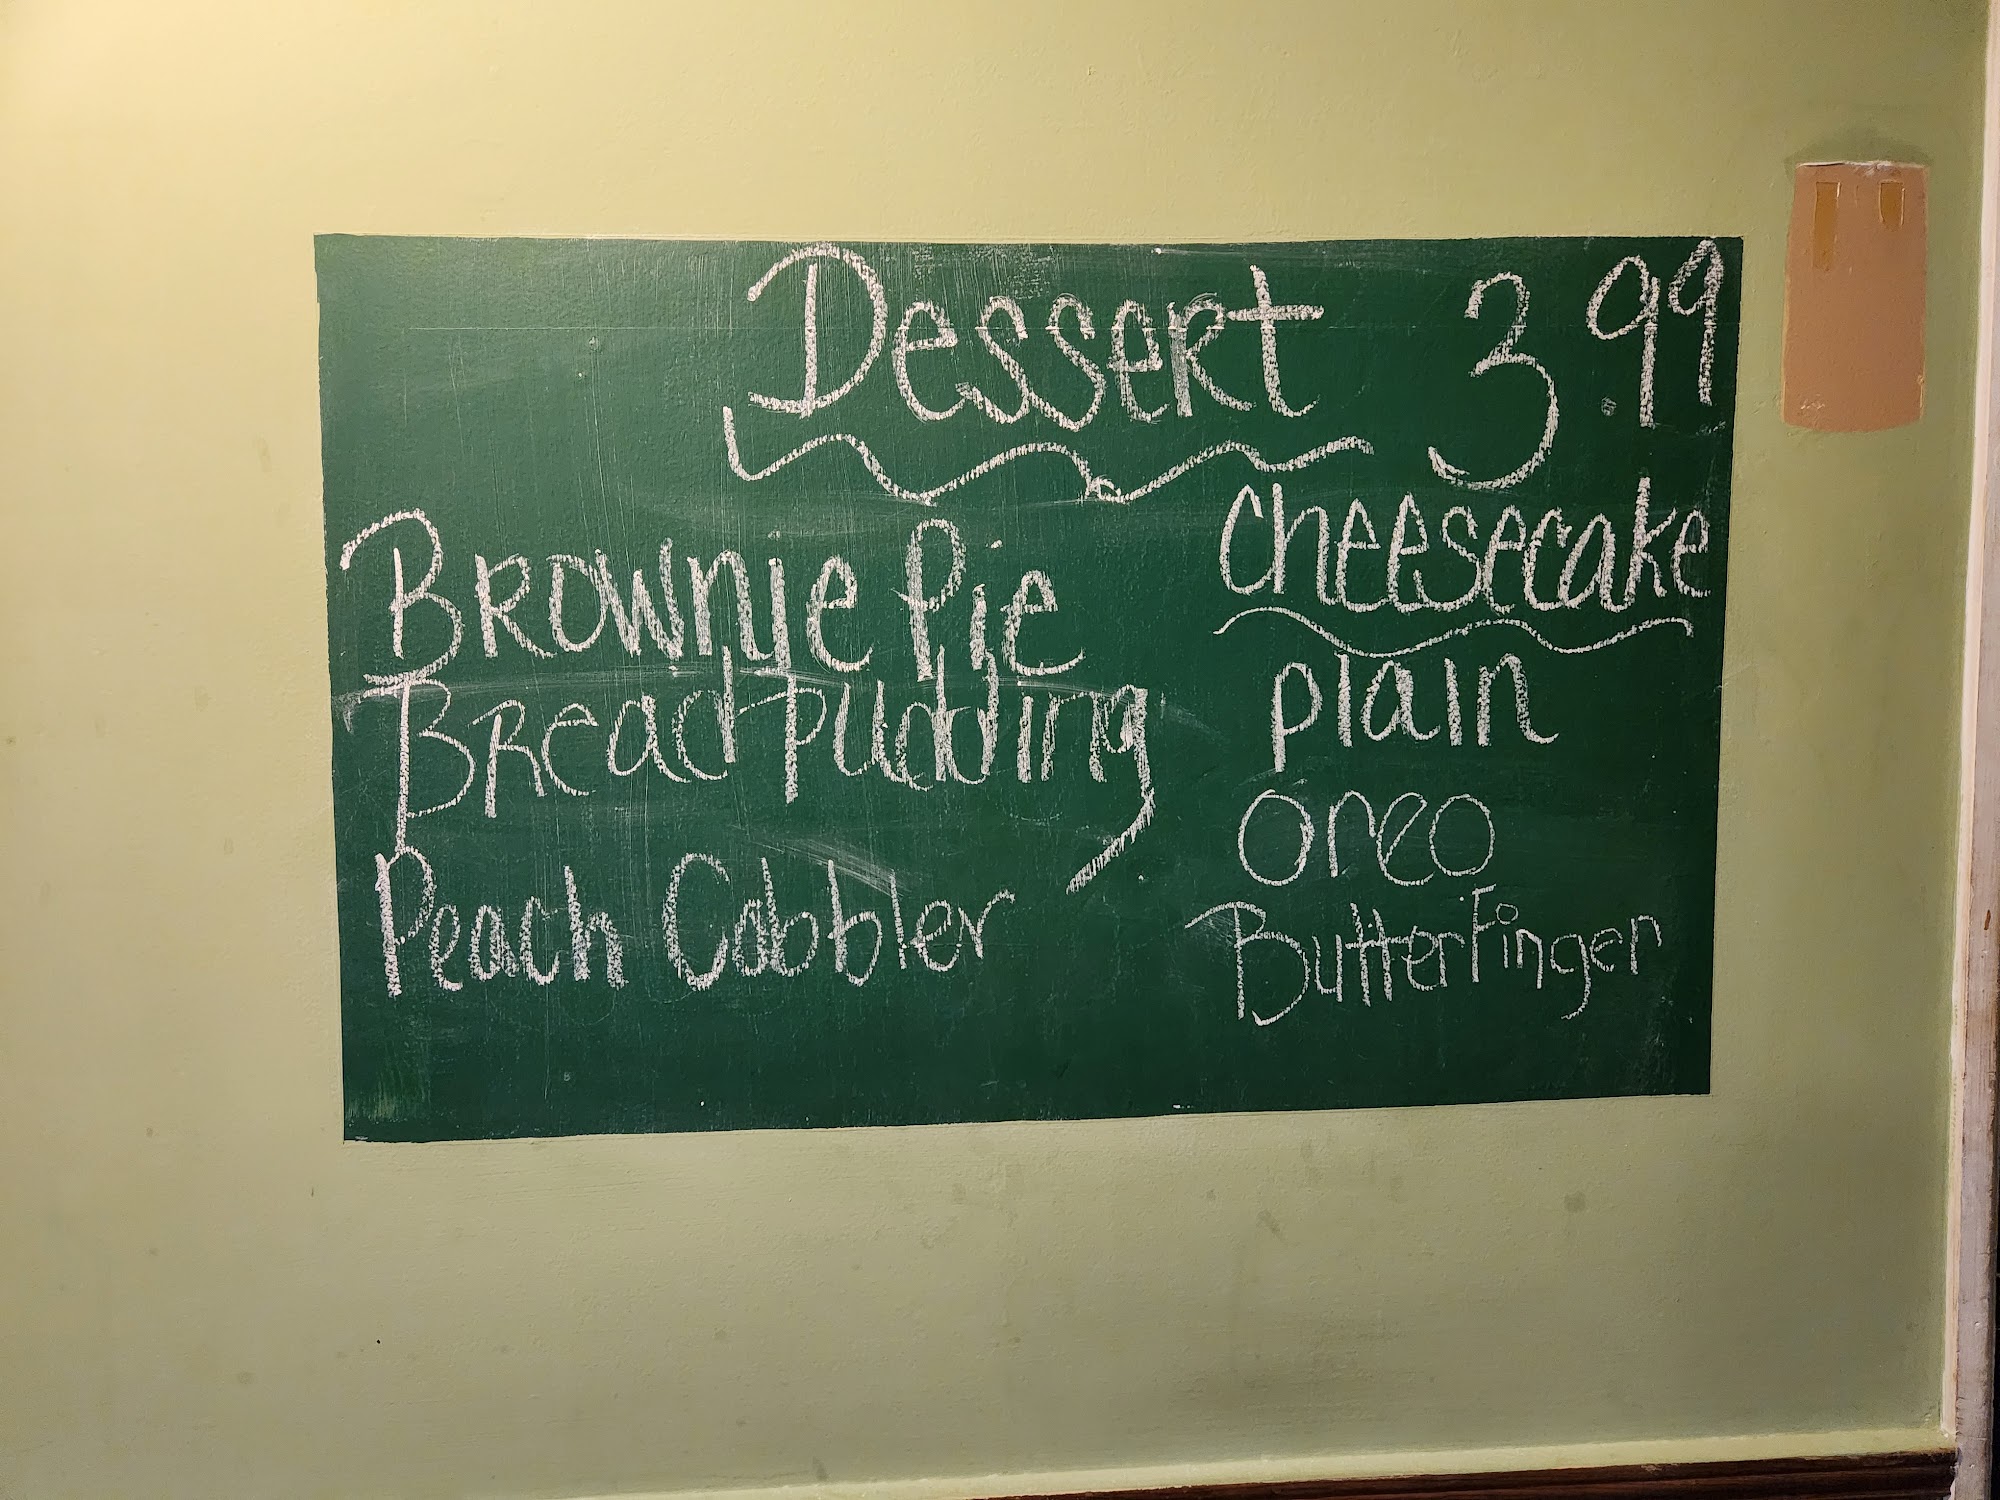 Dessert 3.99
Brownie Pie
Bread pudding
Peach Cobbler
Cheesecake
plain
oreo
ButterFinger